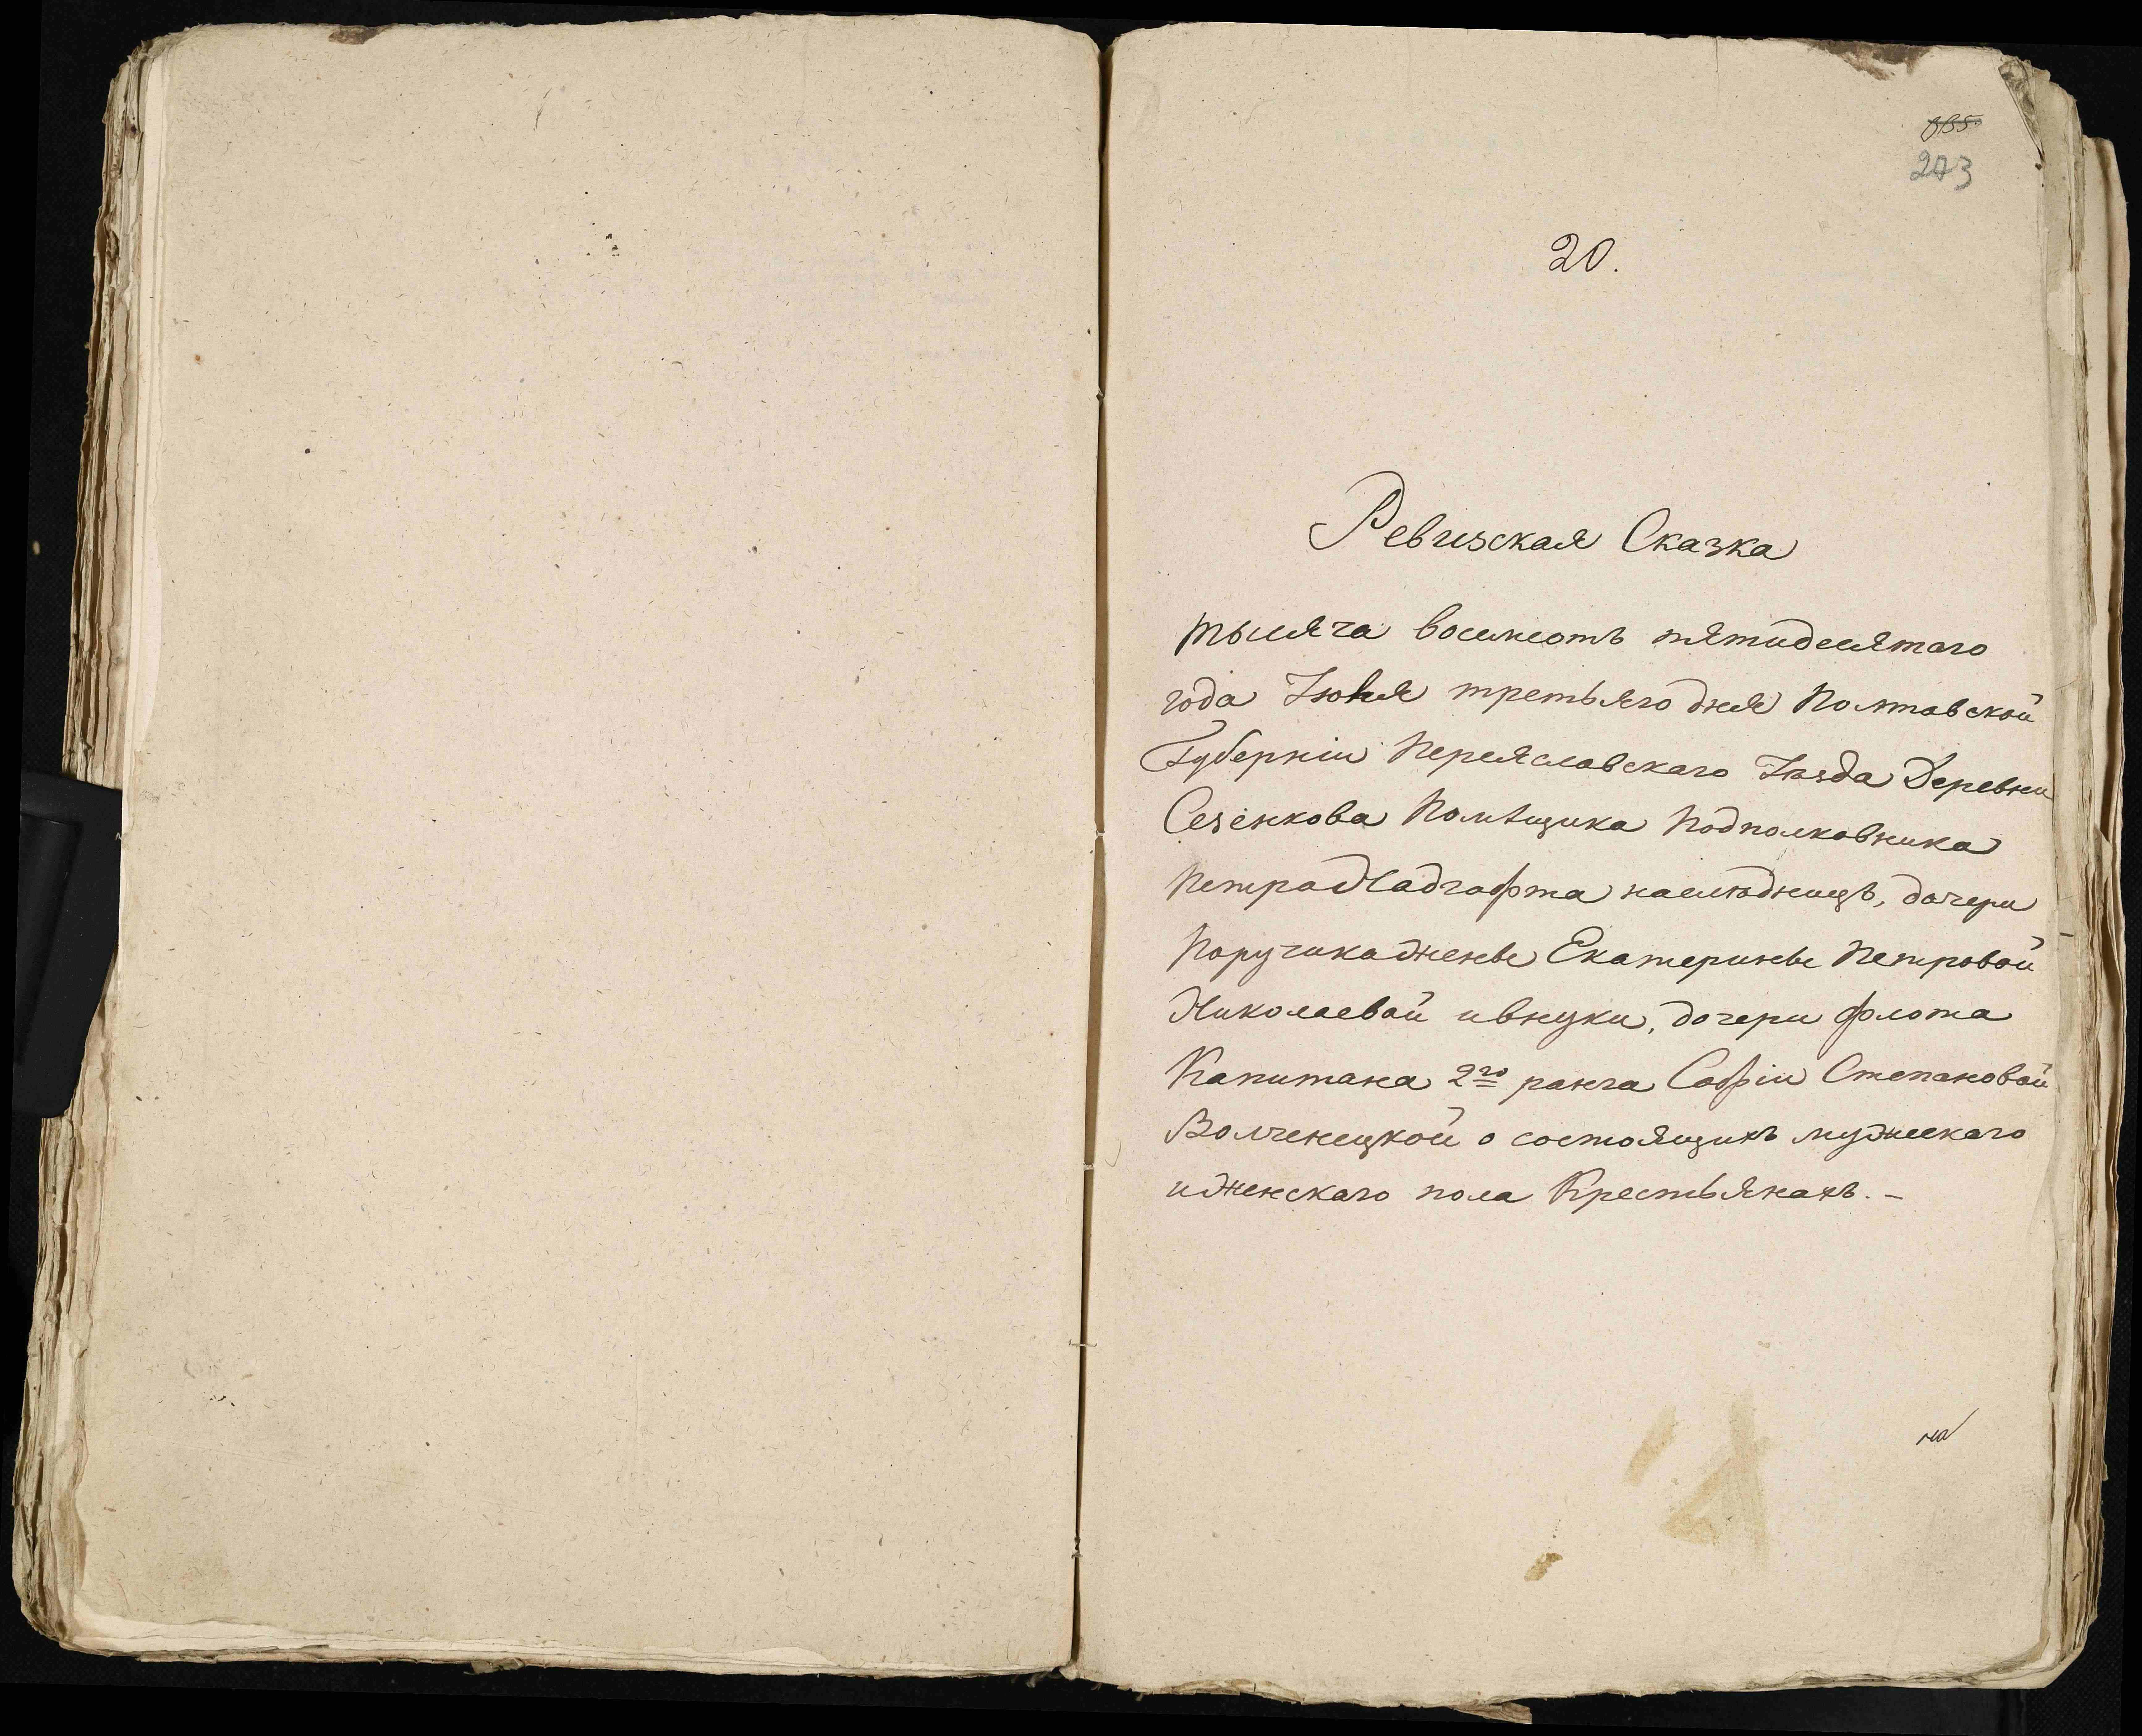 273
20.
Ревизская Сказка
тысяча восемсотъ пятидесятаго
года Іюня третьяго дня Полтавской
Губерніи Переяславскаго Уѣзда Деревни
Сезенкова Помѣщика Подполковника
Петра Надгофта наслѣдницъ, дочери
Поручика жены Екатерины Петровой
Николаевой и внуки, дочери флота
Капитана 2го ранга Софіи Степановой
Волченецкой о состоящихъ мужескаго
и женскаго пола Крестьянахъ. –